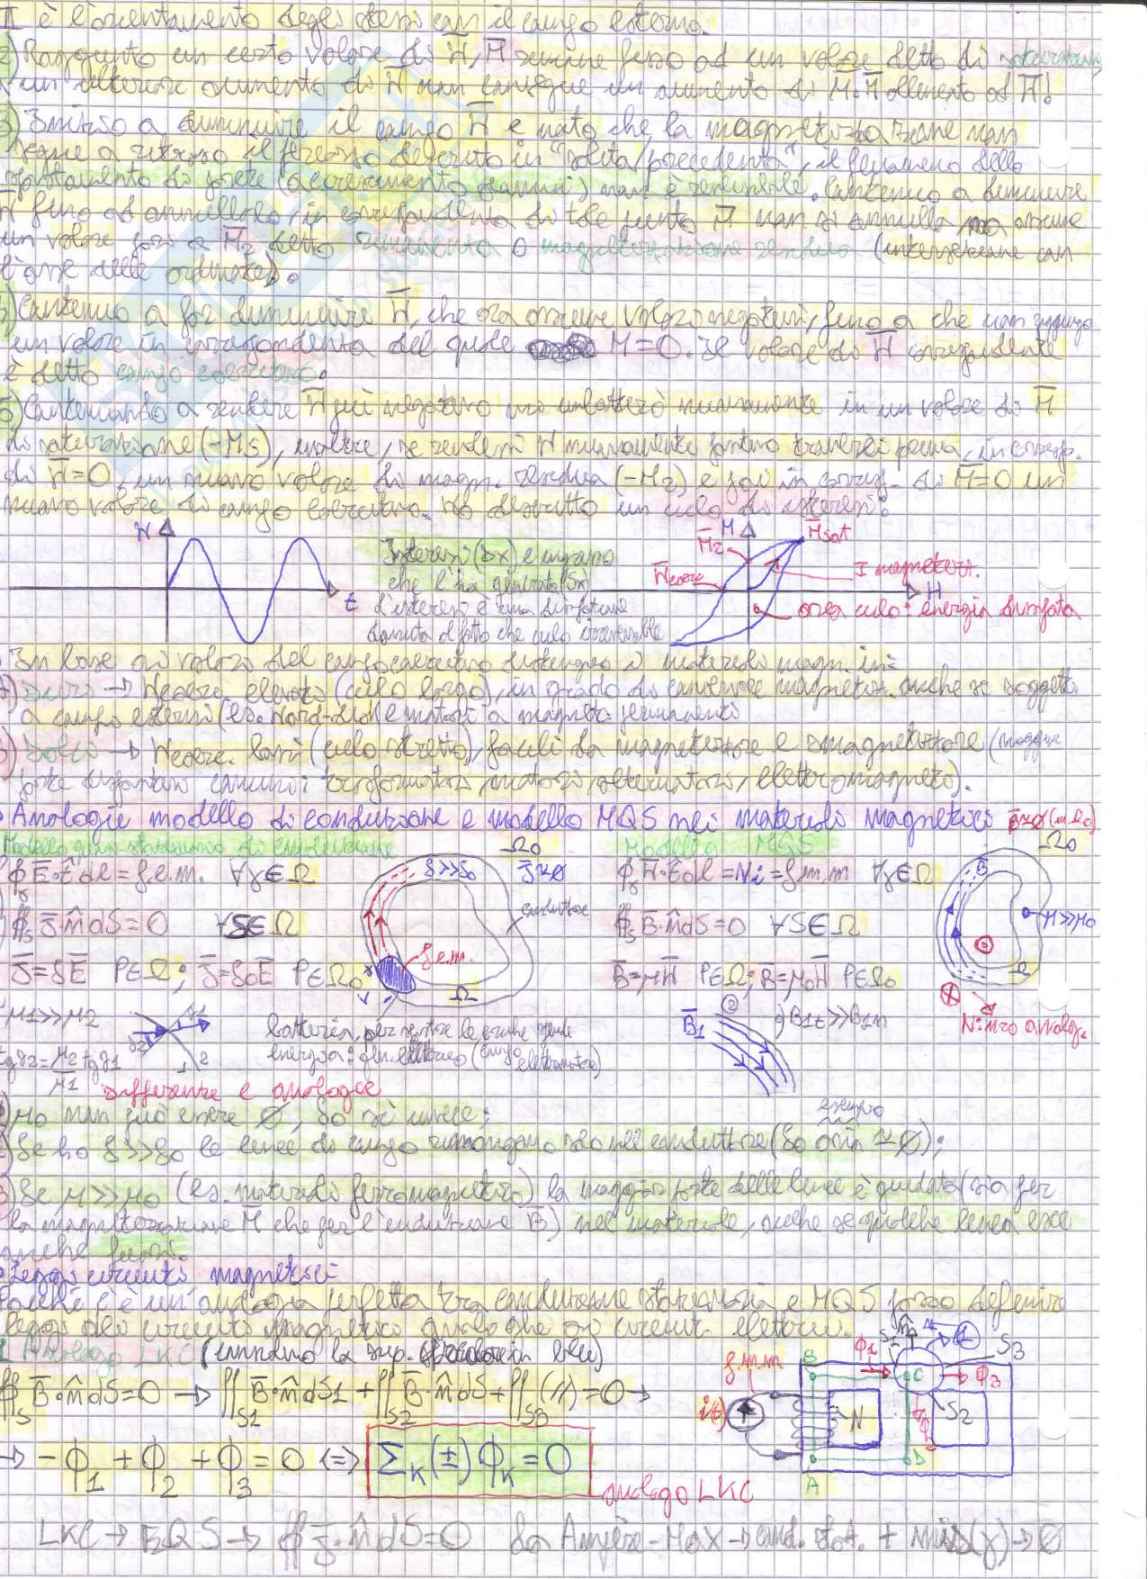 è l'orientamento degli stessi con il campo esterno.
2) Raggiunto un certo valore di H, M rimane fisso ad un valore detto di saturazione,
un ulteriore aumento di H non consegue un aumento di M. M allineato ad H!
3) Inizio a diminuire il campo H e noto che la magnetizzazione non
segue a ritroso il percorso descritto in "salita/precedenza", il fenomeno dello
spostamento di parete (accrescimento domini) non è reversibile. Continuo a diminuire
H fino ad annullarlo, in corrispondenza di tale punto M non si annulla ma assume
un valore pari a Mr detto rimanenza o magnetizzazione residua (intersezione con
l'asse delle ordinate).
4) Continuo a far diminuire H, che ora assume valori negativi, fino a che non giungo
un valore in corrispondenza del quale M=0. Il valore di H corrispondente
è detto campo coercitivo.
5) Continuando a rendere H più negativo mi imbatterò nuovamente in un valore di M
di saturazione (-Ms), inoltre, se rendessi H nuovamente positivo troverei prima, in corrisp.
di H=0, un nuovo valore di magn. residua (-Mr) e poi in corrisp. di M=0 un
nuovo valore di campo coercitivo. Ho descritto un ciclo di isteresi!
H
t
Isteresi (dx) e ingresso
che l'ha generata (sx)
L'isteresi è una
dovuta al fatto che ciclo irreversibile
M
Msat
Mr
Hcoerc
I magnetizz.
H
area ciclo: energia dissipata
In base ai valori del campo coercitivo distinguo i materiali magn. in:
a) duri → Hcoerc. elevato (ciclo largo), in grado di conservare magnetizz. anche se soggetti
a campi esterni (es. Hard-disk e motori a magneti permanenti
b) dolci → Hcoerc. bassi (ciclo stretto), facili da magnetizzare e smagnetizzare (maggior
parte comuni: trasformatori, motori, alternatori, elettromagneti).
Analogie modello di conduzione e modello MQS nei materiali magnetici
Modello quasi stazionario di conduzione
Modello MQS
∮γ E·t̂dl = f.e.m. ∀γ∈Ω
∮γ H·t̂dl = Ni = f.m.m ∀γ∈Ω
∯s J·n̂dS=0 ∀S∈Ω
∯s B·n̂dS=0 ∀S∈Ω
J=σE P∈Ω; J=σ0E P∈Ω0
B=μH P∈Ω; B=μ0H P∈Ω0
Ω0
conduttore
f.e.m.
Ω
Ω0
B
μ>>μ0
Ω
N: n.ro avvolg.
μ1>>μ2
tgα2=μ2/μ1 tgα1
B1
B1t>>B1n
Differenze e analogie
μ0 non può essere ∅, σ0 sì invece;
Se ho σ>>σ0 le linee di campo rimangono solo nel conduttore (σ0 aria ≃∅);
Se μ>>μ0 (es. materiali ferromagnetici) la maggior parte delle linee è guidata (sia per
la magnetizzazione M che per l'induzione B) nel materiale, anche se qualche linea esce
anche fuori.
Leggi circuiti magnetici
Poiché c'è un'analogia perfetta tra conduzione stazionaria e MQS posso definire
leggi dei circuiti magnetici analoghe ai circuiti elettrici.
1 Analogo LKC (considero la sup. sferica in blu)
∯s B·n̂dS=0 → ∬S1 B·n̂dS1 + ∬S2 B·n̂dS + ∬S3 (//) = 0 →
→ -ϕ1 + ϕ2 + ϕ3 = 0 ⟺ Σk (±) ϕk = 0
analogo LKC
f.m.m
i(t)
N
A
B
C
D
ϕ1
ϕ3
S2
S3
LKC → EQS → ∯ J·n̂dS=0 da Ampère-Max → cond. staz.